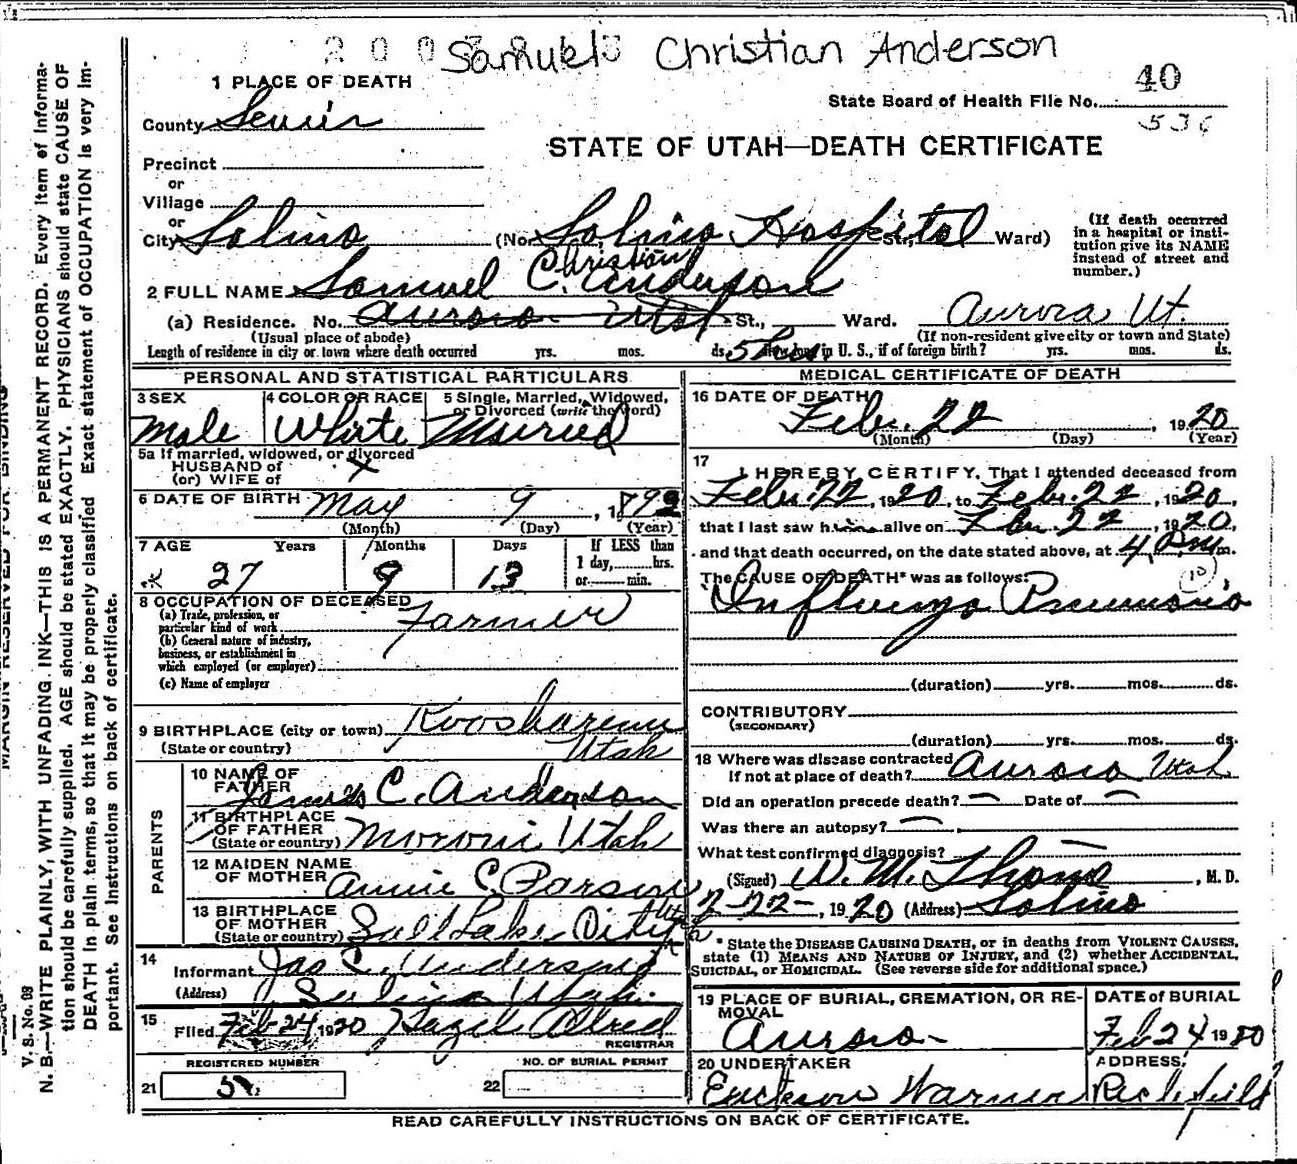 Samuel Christian Anderson
1 PLACE OF DEATH
40
State Board of Health File No.
536
County Sevier
STATE OF UTAH—DEATH CERTIFICATE
Precinct
or
Village
or
City Salina (No. Salina Hospital St., Ward)
(If death occurred in a hospital or insti-
tution give its NAME
instead of street and
number.)
Christian
2 FULL NAME Samuel C. Anderson
(a) Residence. No. Aurora Utah St., Ward. Aurora Ut.
(Usual place of abode) (If non-resident give city or town and State)
Length of residence in city or town where death occurred yrs. mos. ds. 5 hrs. How long in U. S., if of foreign birth? yrs. mos. ds.
PERSONAL AND STATISTICAL PARTICULARS
3 SEX 4 COLOR OR RACE 5 Single, Married, Widowed,
or Divorced (write the word)
Male White Married
5a If married, widowed, or divorced
HUSBAND of
(or) WIFE of x
6 DATE OF BIRTH May 9, 1892
(Month) (Day) (Year)
7 AGE Years Months Days If LESS than
1 day, hrs.
or min.
27 9 13
8 OCCUPATION OF DECEASED
(a) Trade, profession, or
particular kind of work Farmer
(b) General nature of industry,
business, or establishment in
which employed (or employer)
(c) Name of employer
9 BIRTHPLACE (city or town) Koosharem
(State or country) Utah
PARENTS
10 NAME OF
FATHER James C. Anderson
11 BIRTHPLACE
OF FATHER
(State or country) Moroni Utah
12 MAIDEN NAME
OF MOTHER Annie C. Parson
13 BIRTHPLACE
OF MOTHER
(State or country) Salt Lake City Utah
14
Informant Jas C. Anderson
(Address) Salina Utah.
15
Filed Feb 24 1920 Hazel Allred
REGISTRAR
REGISTERED NUMBER NO. OF BURIAL PERMIT
21 22
MEDICAL CERTIFICATE OF DEATH
16 DATE OF DEATH
Feb. 22, 1920
(Month) (Day) (Year)
17
I HEREBY CERTIFY, That I attended deceased from
Feb. 22, 1920, to Feb. 22, 1920,
that I last saw him alive on Feb. 22, 1920,
and that death occurred, on the date stated above, at 4 P.m.
The CAUSE OF DEATH* was as follows:
10
Influenza Pneumonia
(duration) yrs. mos. ds.
CONTRIBUTORY
(SECONDARY)
(duration) yrs. mos. ds.
18 Where was disease contracted
If not at place of death? Aurora Utah
Did an operation precede death? — Date of —
Was there an autopsy? —
What test confirmed diagnosis? —
(Signed) W. M. , M. D.
2-22-, 1920 (Address) Salina
* State the DISEASE CAUSING DEATH, or in deaths from VIOLENT CAUSES,
state (1) MEANS AND NATURE OF INJURY, and (2) whether ACCIDENTAL,
SUICIDAL, or HOMICIDAL. (See reverse side for additional space.)
19 PLACE OF BURIAL, CREMATION, OR RE-
MOVAL DATE of BURIAL
Aurora Feb 24 1920
20 UNDERTAKER ADDRESS
Warner Richfield
READ CAREFULLY INSTRUCTIONS ON BACK OF CERTIFICATE.
MARGIN RESERVED FOR BINDING
V. S. No. 98
N. B.—WRITE PLAINLY, WITH UNFADING INK—THIS IS A PERMANENT RECORD. Every item of informa-
tion should be carefully supplied. AGE should be stated EXACTLY. PHYSICIANS should state CAUSE OF
DEATH in plain terms, so that it may be properly classified Exact statement of OCCUPATION is very im-
portant. See instructions on back of certificate.